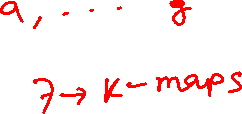 a, .... g
7 → K-maps